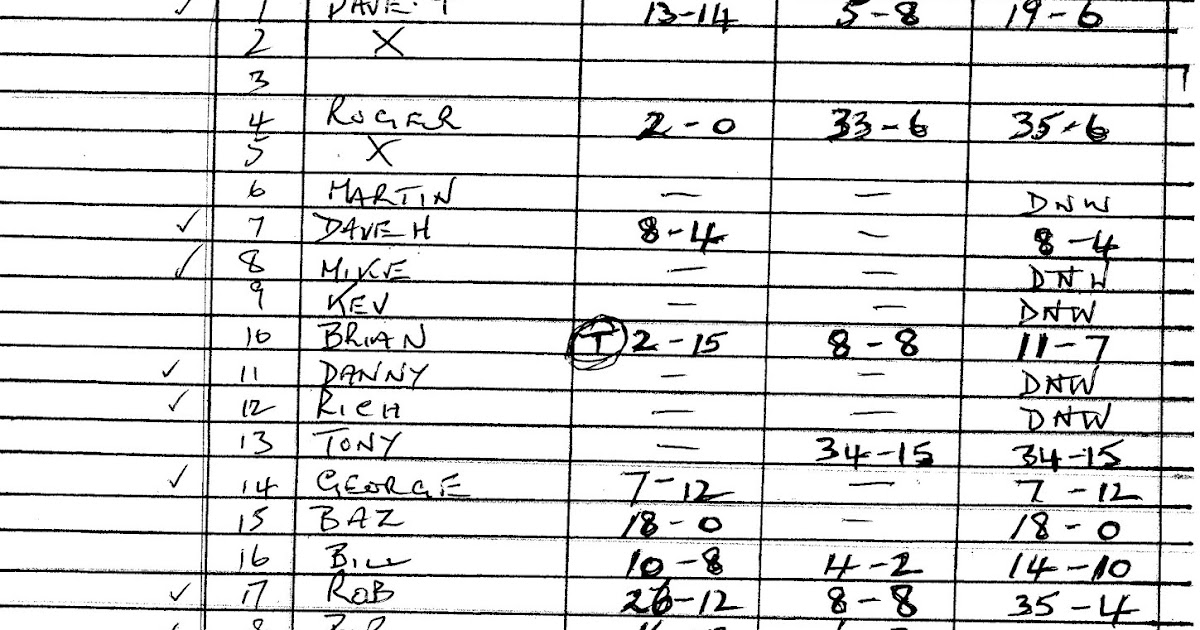 ✓ 1 DAVE T 13-14 5-8 19-6
2 X
3
4 ROGER 2-0 33-6 35-6
5 X
6 MARTIN — — DNW
✓ 7 DAVE H 8-4 — 8-4
✓ 8 MIKE — — DNW
9 KEV — — DNW
10 BRIAN T 2-15 8-8 11-7
✓ 11 DANNY — — DNW
✓ 12 RICH — — DNW
13 TONY — 34-15 34-15
✓ 14 GEORGE 7-12 — 7-12
15 BAZ 18-0 — 18-0
16 BILL 10-8 4-2 14-10
✓ 17 ROB 26-12 8-8 35-4